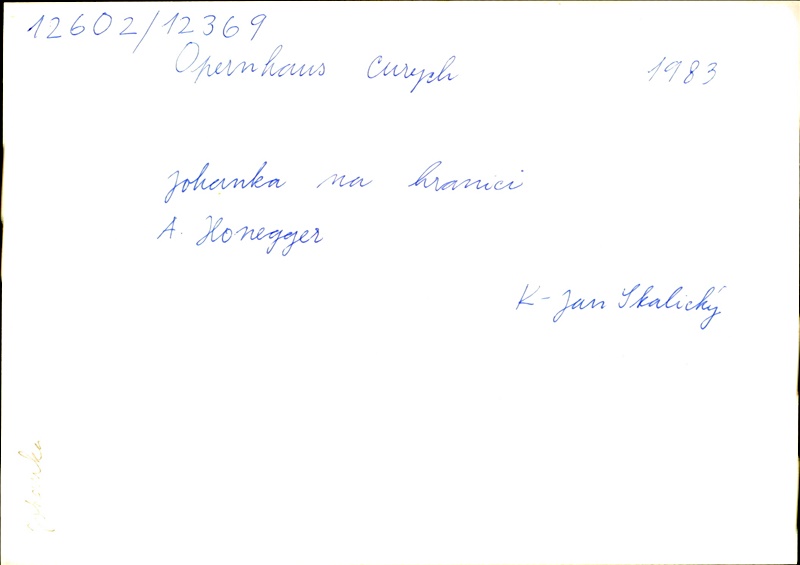 12602/12369
Opernhaus Curych 1983
Johanka na hranici
A. Honegger
K - Jan Skalický
Johanka